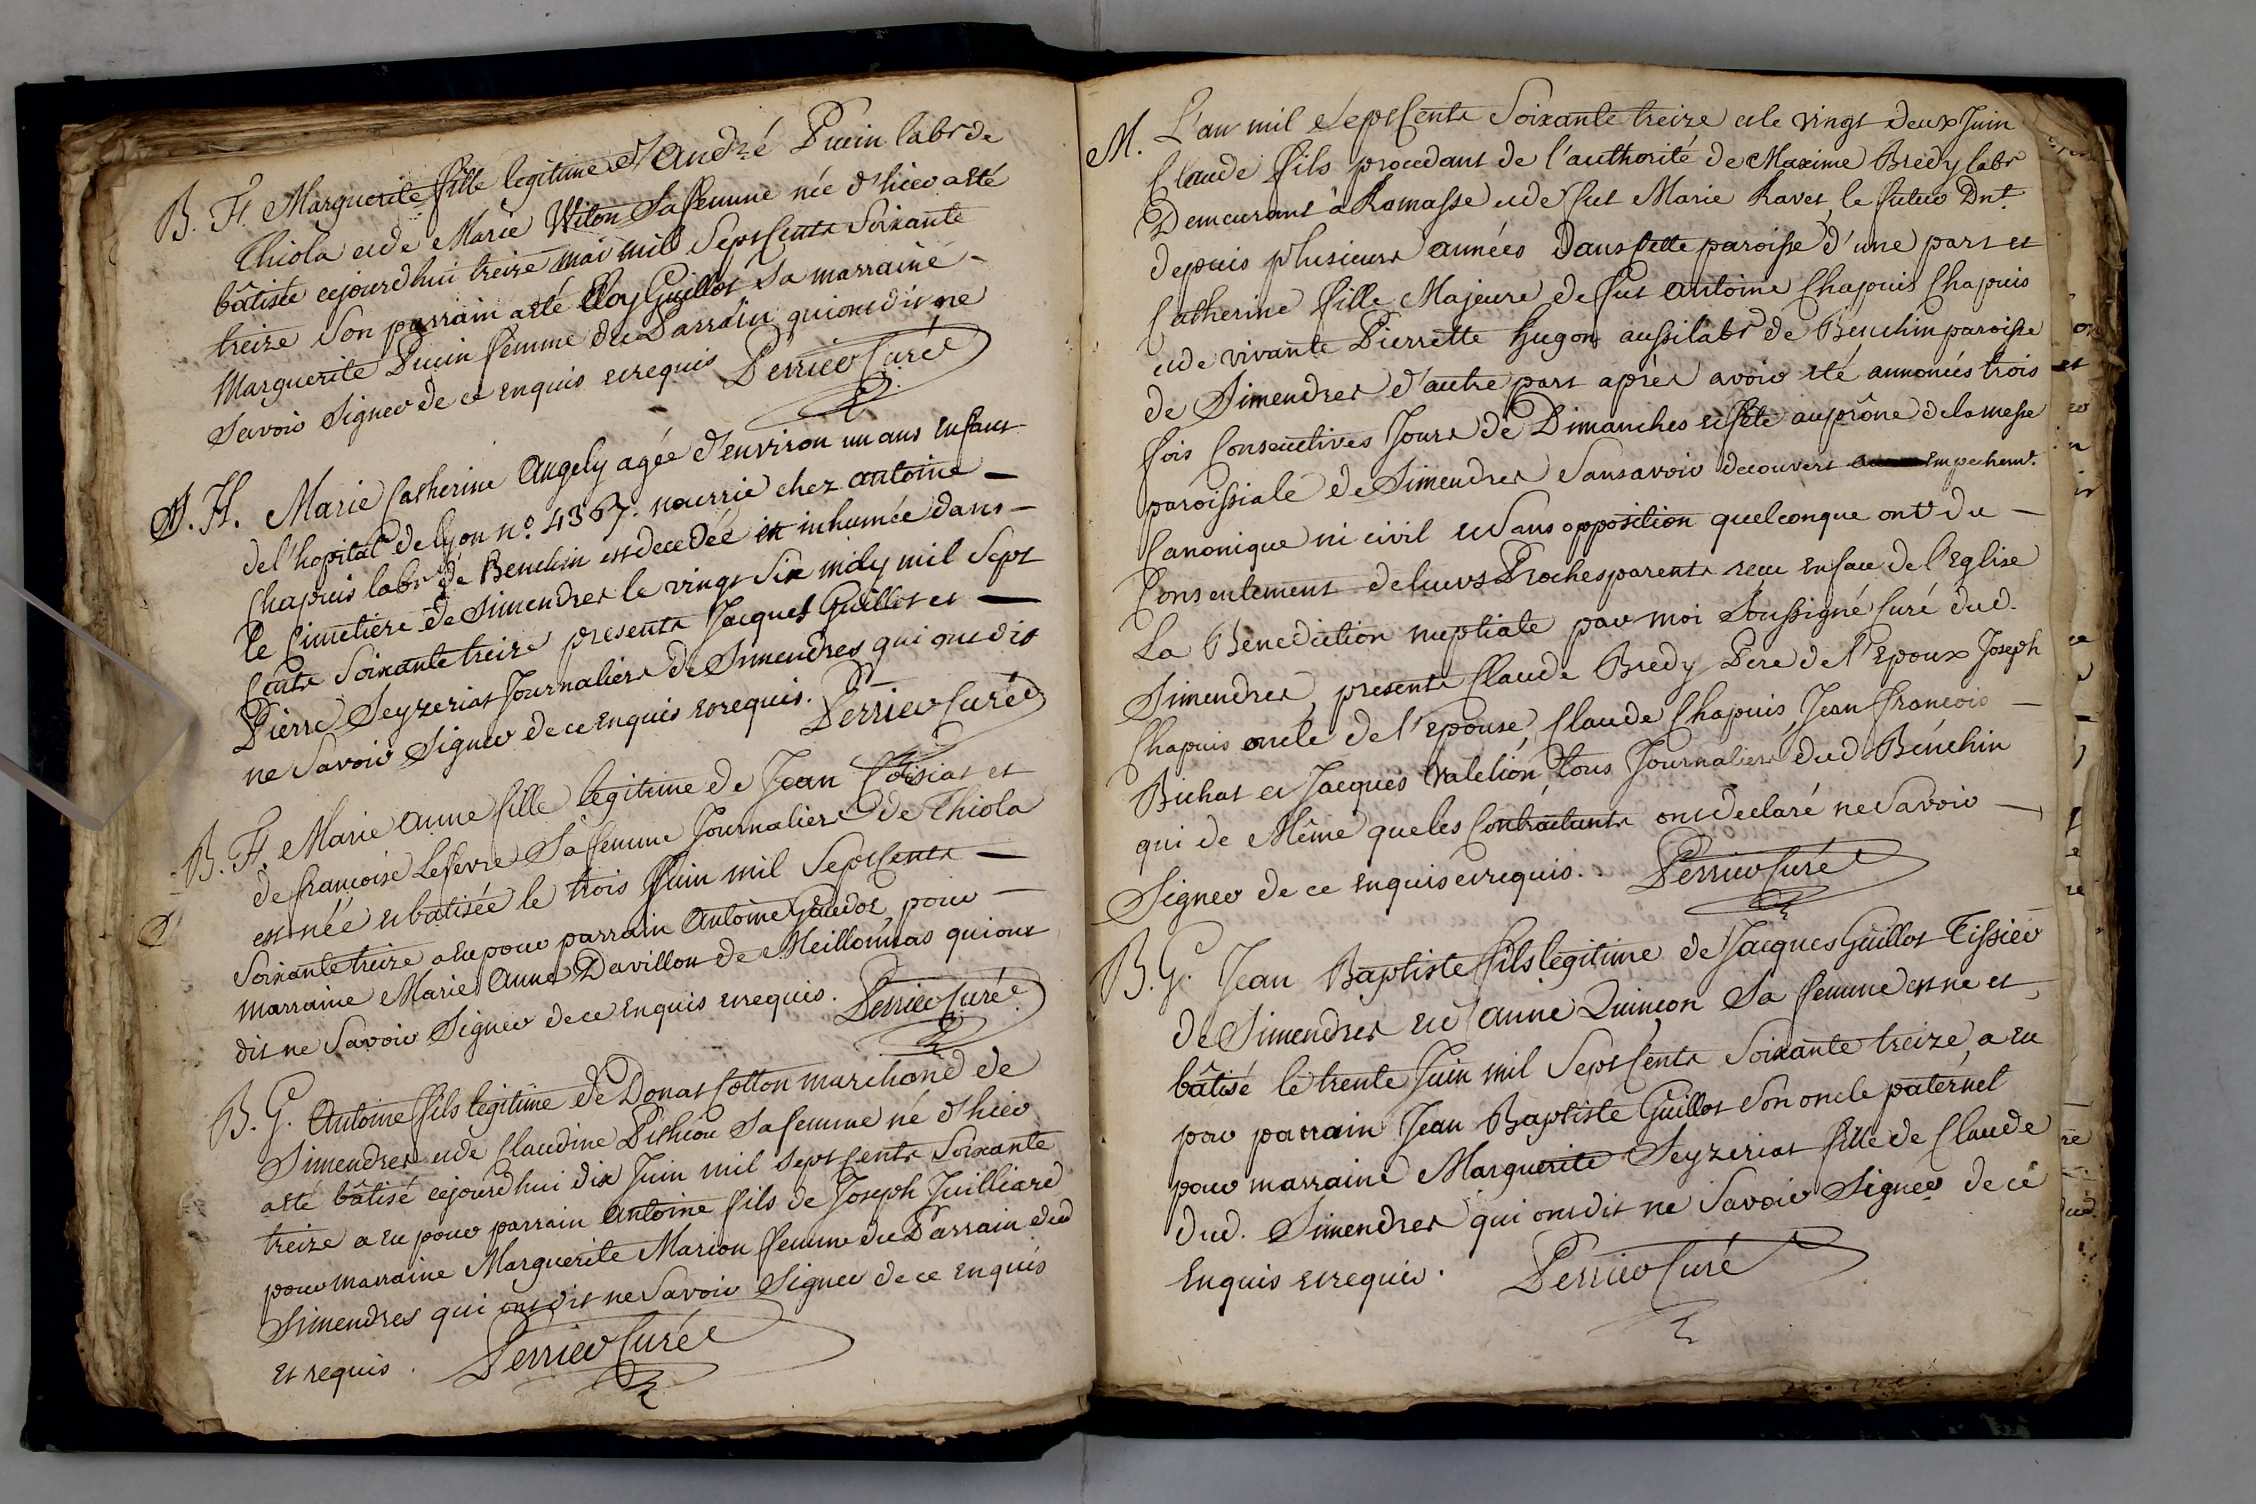 B. F. Marguerite fille legitime d'André Pucin labr de
Thiola et de Marie Viton Sa femme née d'hier a eté
bâtisée cejourdhui treize mai mil Sept Cents Soixante
treize Son parrain a eté Eloy Guillot Sa marraine -
Marguerite Pucin femme du Parrain qui ont dit ne
Savoir Signer de ce enquis et requis Perrier Curé
M. F. Marie Catherine Angely agée d'environ un ans enfant
de l'hopital de Lyon n.º 4367. nourrie chez antoine —
Chapuis labr de Benchin est decedée et inhumée dans —
le Cimetiere de Simendres le vingt Six may mil Sept
Cents Soixante treize presents Jacques Guillot et —
Pierre Seyzeriat Journaliers de Simendres qui ont dit
ne Savoir Signer de ce enquis et requis. Perrier Curé
B. F. Marie anne fille legitime de Jean Poisiat et
de françoise Lefevre Sa femme Journaliers de Thiola
est née et batisée le trois Juin mil Sept Cents —
Soixante treize a eu pour parrain Antoine Gaudoz pour —
marraine Marie Anne Davillon de Meillonnas qui ont
dit ne Savoir Signer de ce enquis et requis. Perrier Curé
B. G. Antoine fils legitime de Donat Cotton marchand de
Simendres et de Claudine Pichion Sa femme né d'hier
a eté bâtisé cejourdhui dix Juin mil Sept Cents Soixante
treize a eu pour parrain Antoine fils de Joseph Juilliard
pour marraine Marguerite Marion femme du Parrain dud
Simendres qui ont dit ne Savoir Signer de ce enquis
et requis. Perrier Curé
M. L'an mil Sept Cents Soixante treize et le vingt deux Juin
Claude fils procedant de l'authorité de Maxime Bredy labr
Demeurant à Ramasse et de fut Marie Ravet, le futur Dnt
depuis plusieurs années dans Cette paroisse d'une part et
Catherine fille Majeure de fut antoine Chapuis Chapuis
et de vivante Pierrette Hugon aussi labr de Benchin paroisse
de Simendres d'autre part après avoir eté annoncés trois
fois Consecutives Jours de Dimanches et fête au prône de la messe
paroissiale de Simendres Sans avoir decouvert empechemt.
Canonique ni civil et Sans opposition quelconque ont du —
Consentement de leurs Proches parents recu en face de l'Eglise
La Benediction nuptiale par moi Soussigné Curé dud.
Simendres, presents Claude Bredy Pere de l'Epoux Joseph
Chapuis oncle de l'epouse, Claude Chapuis, Jean francois —
Bichat et Jacques Valetion, tous Journaliers dud Bénchin
qui de Même que les Contractants ont declaré ne Savoir —
Signer de ce enquis et requis. . Perrier Curé
B. G. Jean Baptiste fils legitime de Jacques Guillot Tissier
de Simendres et d'anne Quinson Sa femme est né et
bâtisé le trente Juin mil Sept Cents Soixante treize, a eu
pour parrain Jean Baptiste Guillot Son oncle paternel
pour marraine Marguerite Seyzeriat fille de Claude
dud. Simendres qui ont dit ne Savoir Signer de ce
Enquis et requis. Perrier Curé